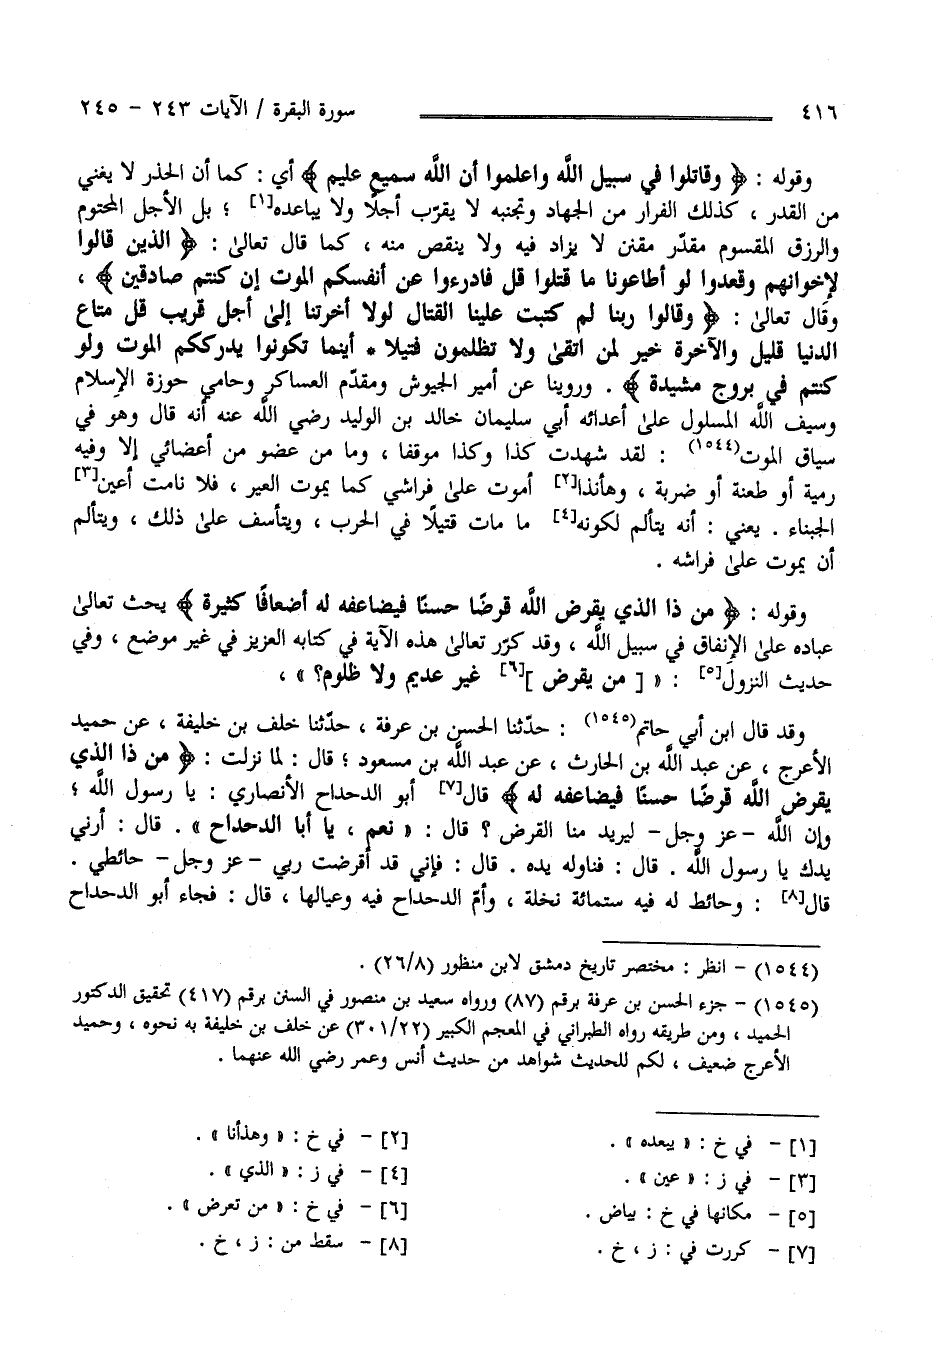 ٤١٦ سورة البقرة / الآيات ٢٤٣ - ٢٤٥
وقوله : ﴿ وقاتلوا في سبيل اللَّه واعلموا أن اللَّه سميع عليم ﴾ أي : كما أن الحذر لا يغني
من القدر ، كذلك الفرار من الجهاد وتجنبه لا يقرّب أجلًا ولا يباعده[١] ؛ بل الأجل المحتوم
والرزق المقسوم مقدّر مقنن لا يزاد فيه ولا ينقص منه ، كما قال تعالىٰ : ﴿ الذين قالوا
لإخوانهم وقعدوا لو أطاعونا ما قتلوا قل فادرءوا عن أنفسكم الموت إن كنتم صادقين ﴾ ،
وقال تعالىٰ : ﴿ وقالوا ربنا لم كتبت علينا القتال لولا أخرتنا إلىٰ أجل قريب قل متاع
الدنيا قليل والآخرة خير لمن اتقىٰ ولا تظلمون فتيلا * أينما تكونوا يدرككم الموت ولو
كنتم في بروج مشيدة ﴾ . وروينا عن أمير الجيوش ومقدّم العساكر وحامي حوزة الإسلام
وسيف اللَّه المسلول علىٰ أعدائه أبي سليمان خالد بن الوليد رضي اللَّه عنه أنه قال وهو في
سياق الموت(١٥٤٤) : لقد شهدت كذا وكذا موقفا ، وما من عضو من أعضائي إلا وفيه
رمية أو طعنة أو ضربة ، وهأنذا[٢] أموت علىٰ فراشي كما يموت العير ، فلا نامت أعين[٣]
الجبناء . يعني : أنه يتألم لكونه[٤] ما مات قتيلًا في الحرب ، ويتأسف علىٰ ذلك ، ويتألم
أن يموت علىٰ فراشه .
وقوله : ﴿ من ذا الذي يقرض اللَّه قرضًا حسنًا فيضاعفه له أضعافًا كثيرة ﴾ يحث تعالىٰ
عباده علىٰ الإنفاق في سبيل اللَّه ، وقد كرّر تعالىٰ هذه الآية في كتابه العزيز في غير موضع ، وفي
حديث النزول[٥] : « [ من يقرض ][٦] غير عديم ولا ظلوم؟ » ،
وقد قال ابن أبي حاتم(١٥٤٥) : حدّثنا الحسن بن عرفة ، حدّثنا خلف بن خليفة ، عن حميد
الأعرج ، عن عبد اللَّه بن الحارث ، عن عبد اللَّه بن مسعود ؛ قال : لما نزلت : ﴿ من ذا الذي
يقرض اللَّه قرضًا حسنًا فيضاعفه له ﴾ قال[٧] أبو الدحداح الأنصاري : يا رسول اللَّه ؛
وإن اللَّه -عز وجل- ليريد منا القرض ؟ قال : « نعم ، يا أبا الدحداح » . قال : أرني
يدك يا رسول اللَّه . قال : فناوله يده . قال : فإني قد أقرضت ربي -عز وجل- حائطي .
قال[٨] : وحائط له فيه ستمائة نخلة ، وأمّ الدحداح فيه وعيالها ، قال : فجاء أبو الدحداح
(١٥٤٤) - انظر : مختصر تاريخ دمشق لابن منظور (٢٦/٨) .
(١٥٤٥) - جزء الحسن بن عرفة برقم (٨٧) ورواه سعيد بن منصور في السنن برقم (٤١٧) تحقيق الدكتور
الحميد ، ومن طريقه رواه الطبراني في المعجم الكبير (٣٠١/٢٢) عن خلف بن خليفة به نحوه ، وحميد
الأعرج ضعيف ، لكم للحديث شواهد من حديث أنس وعمر رضي الله عنهما .
[١] - في خ : « يبعده » . [٢] - في خ : « وهذأنا » .
[٣] - في ز : « عين » . [٤] - في ز : « الذي » .
[٥] - مكانها في خ : بياض . [٦] - في خ : « من تعرض » .
[٧] - كررت في : ز ، خ . [٨] - سقط من : ز ، خ .